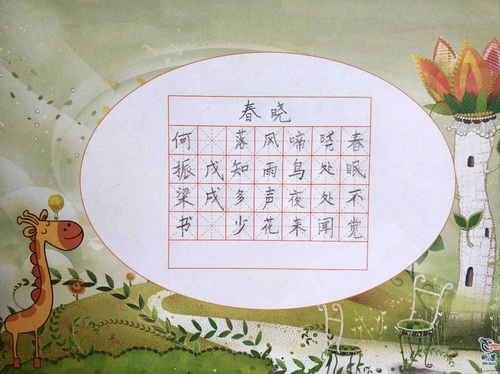 春晓
春眠不觉
晓处处闻
啼鸟夜来
风雨声花
落知多少
戊戌
何振梁书